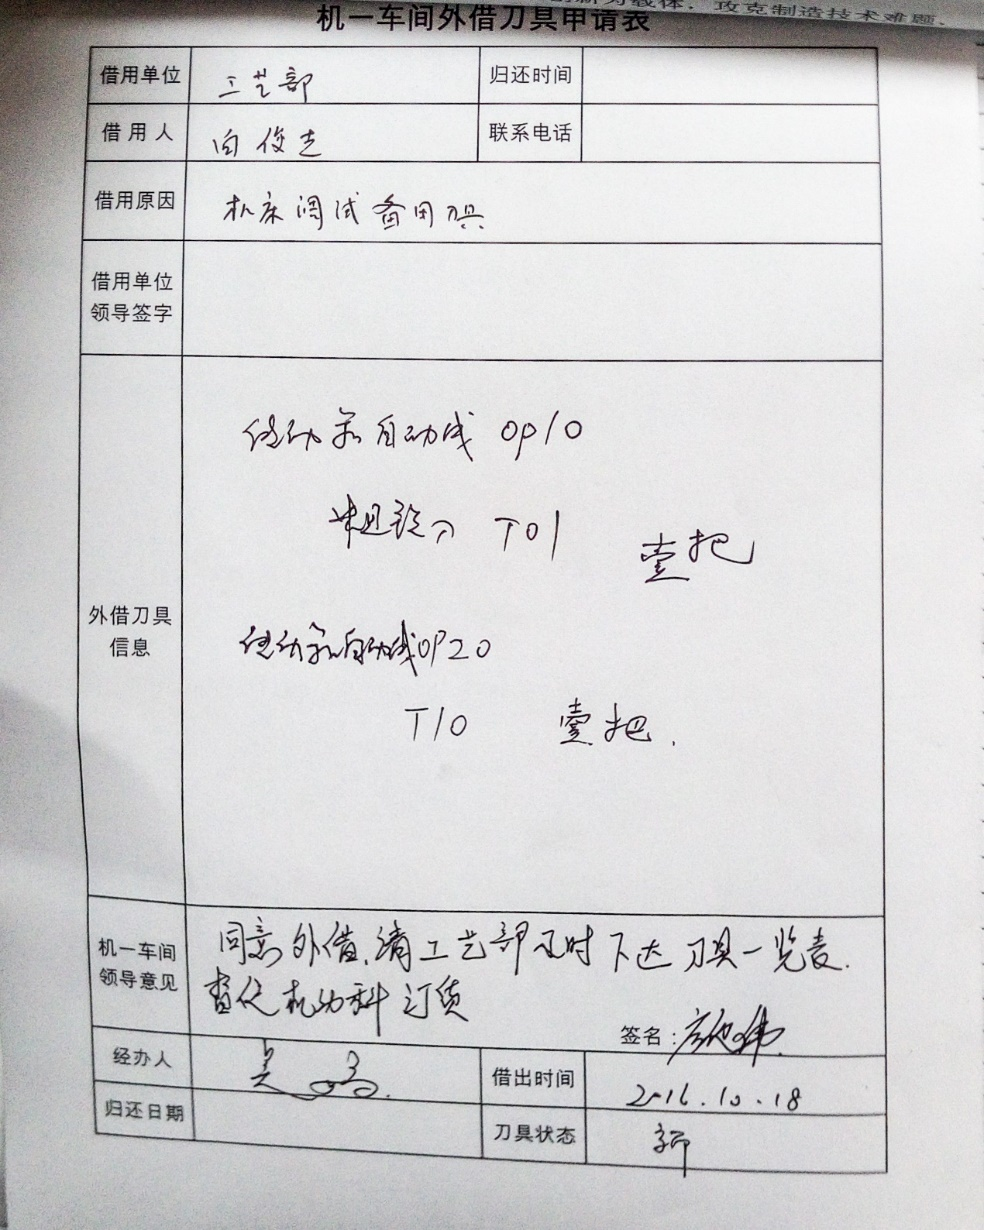 攻克制造技术难题.
机一车间外借刀具申请表
借用单位 工艺部 归还时间
借用人 向俊志 联系电话
借用原因 机床调试备用刀具
借用单位
领导签字
外借刀具
信息
传动箱自动线 OP10
粗铣刀 T01 壹把
传动箱自动线OP20
T10 壹把.
机一车间
领导意见
同意外借,请工艺部及时下达刀具一览表.
督促机动科订货
签名:
经办人 借出时间 2016.10.18
归还日期 刀具状态 新